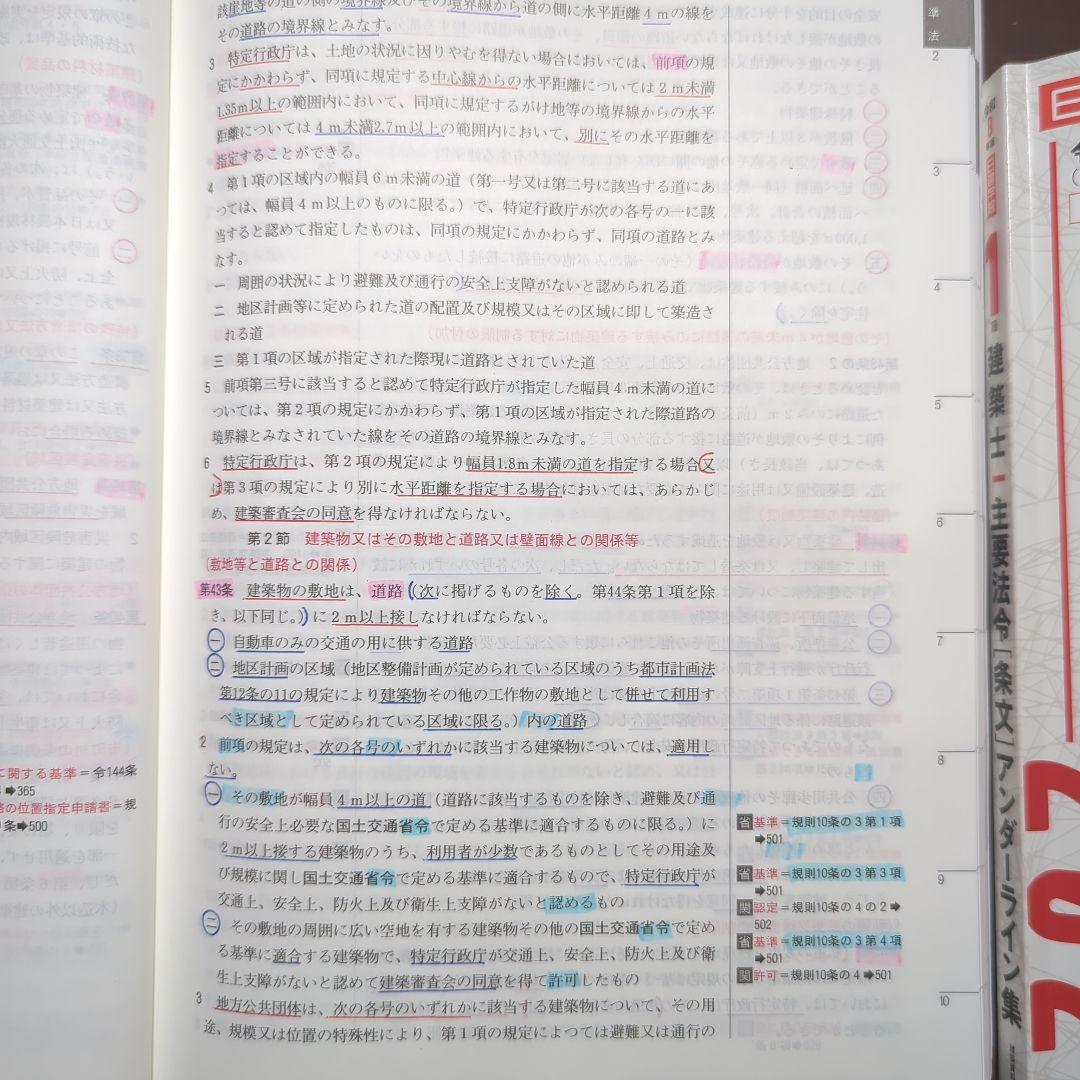 該崖地等の道の側の境界線及びその境界線から道の側に水平距離4mの線を
その道路の境界線とみなす。
3 特定行政庁は、土地の状況に因りやむを得ない場合においては、前項の規
定にかかわらず、同項に規定する中心線からの水平距離については2m未満
1.35m以上の範囲内において、同項に規定するがけ地等の境界線からの水平
距離については4m未満2.7m以上の範囲内において、別にその水平距離を
指定することができる。
4 第1項の区域内の幅員6m未満の道(第一号又は第二号に該当する道にあ
つては、幅員4m以上のものに限る。)で、特定行政庁が次の各号の一に該
当すると認めて指定したものは、同項の規定にかかわらず、同項の道路とみ
なす。
一 周囲の状況により避難及び通行の安全上支障がないと認められる道
二 地区計画等に定められた道の配置及び規模又はその区域に即して築造さ
れる道
三 第1項の区域が指定された際現に道路とされていた道
5 前項第三号に該当すると認めて特定行政庁が指定した幅員4m未満の道に
ついては、第2項の規定にかかわらず、第1項の区域が指定された際道路の
境界線とみなされていた線をその道路の境界線とみなす。
6 特定行政庁は、第2項の規定により幅員1.8m未満の道を指定する場合又
は第3項の規定により別に水平距離を指定する場合においては、あらかじ
め、建築審査会の同意を得なければならない。
第2節 建築物又はその敷地と道路又は壁面線との関係等
(敷地等と道路との関係)
第43条 建築物の敷地は、道路(次に掲げるものを除く。第44条第1項を除
き、以下同じ。)に2m以上接しなければならない。
一 自動車のみの交通の用に供する道路
二 地区計画の区域(地区整備計画が定められている区域のうち都市計画法
第12条の11の規定により建築物その他の工作物の敷地として併せて利用す
べき区域として定められている区域に限る。)内の道路
2 前項の規定は、次の各号のいずれかに該当する建築物については、適用し
ない。
一 その敷地が幅員4m以上の道(道路に該当するものを除き、避難及び通
行の安全上必要な国土交通省令で定める基準に適合するものに限る。)に
2m以上接する建築物のうち、利用者が少数であるものとしてその用途及
び規模に関し国土交通省令で定める基準に適合するもので、特定行政庁が
交通上、安全上、防火上及び衛生上支障がないと認めるもの
二 その敷地の周囲に広い空地を有する建築物その他の国土交通省令で定め
る基準に適合する建築物で、特定行政庁が交通上、安全上、防火上及び衛
生上支障がないと認めて建築審査会の同意を得て許可したもの
3 地方公共団体は、次の各号のいずれかに該当する建築物について、その用
途、規模又は位置の特殊性により、第1項の規定によつては避難又は通行の
に関する基準=令144条
4➡365
路の位置指定申請書=規
9条➡500
省 基準=規則10条の3第1項
➡501
省 基準=規則10条の3第3項
➡501
関 認定=規則10条の4の2➡
502
省 基準=規則10条の3第4項
➡501
関 許可=規則10条の4➡501
準法
2
3
4
5
6
7
8
9
10
1
建築士 主要法令[条文]アンダーライン集